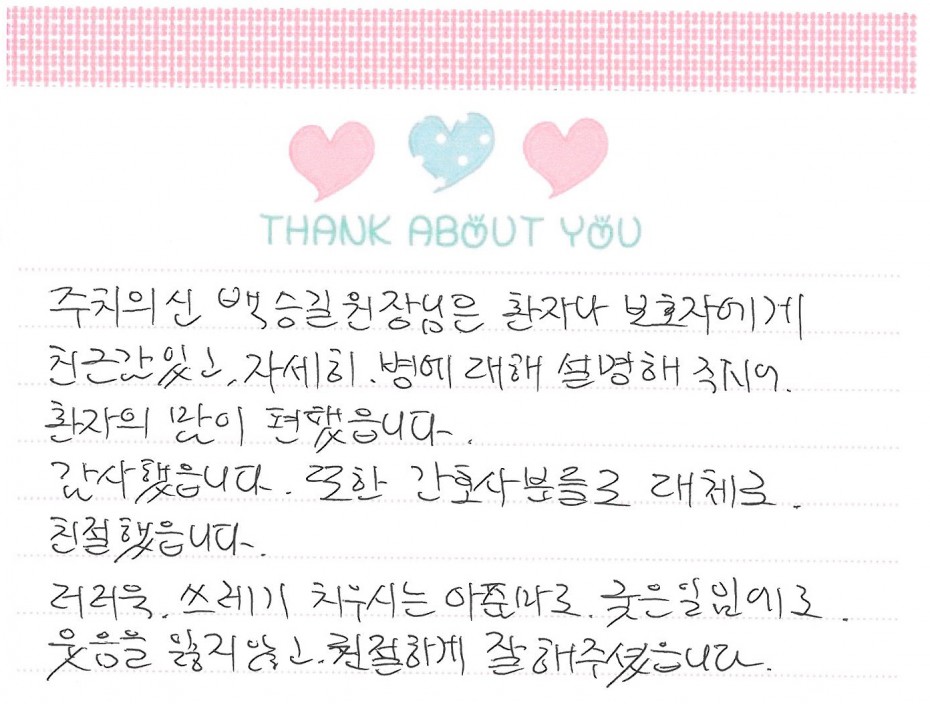 THANK ABOUT YOU
주치의신 백승길원장님은 환자나 보호자에게
친근감있고, 자세히. 병에 대해 설명해 주지어.
환자의 맘이 편했읍니다.
감사했읍니다. 또한 간호사분들로 대체로.
친절했읍니다.
더러욱. 쓰레기 치우시는 아줌마로. 궂은일임에로.
웃음을 잃지않고. 친절하게 잘해주셨읍니다.